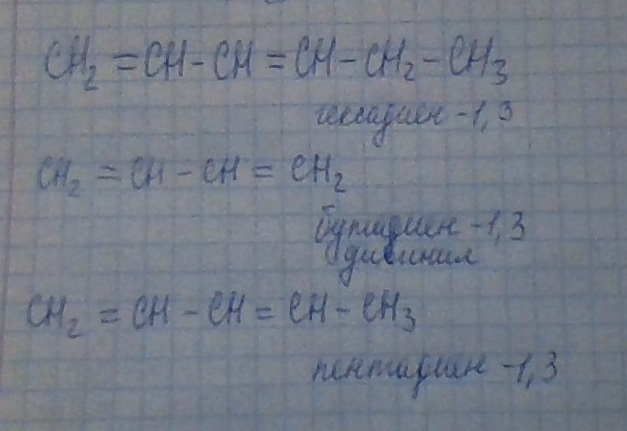 CH₂=CH-CH=CH-CH₂-CH₃
гексадиен-1,3
CH₂=CH-CH=CH₂
бутадиен-1,3
дивинил
CH₂=CH-CH=CH-CH₃
пентадиен-1,3